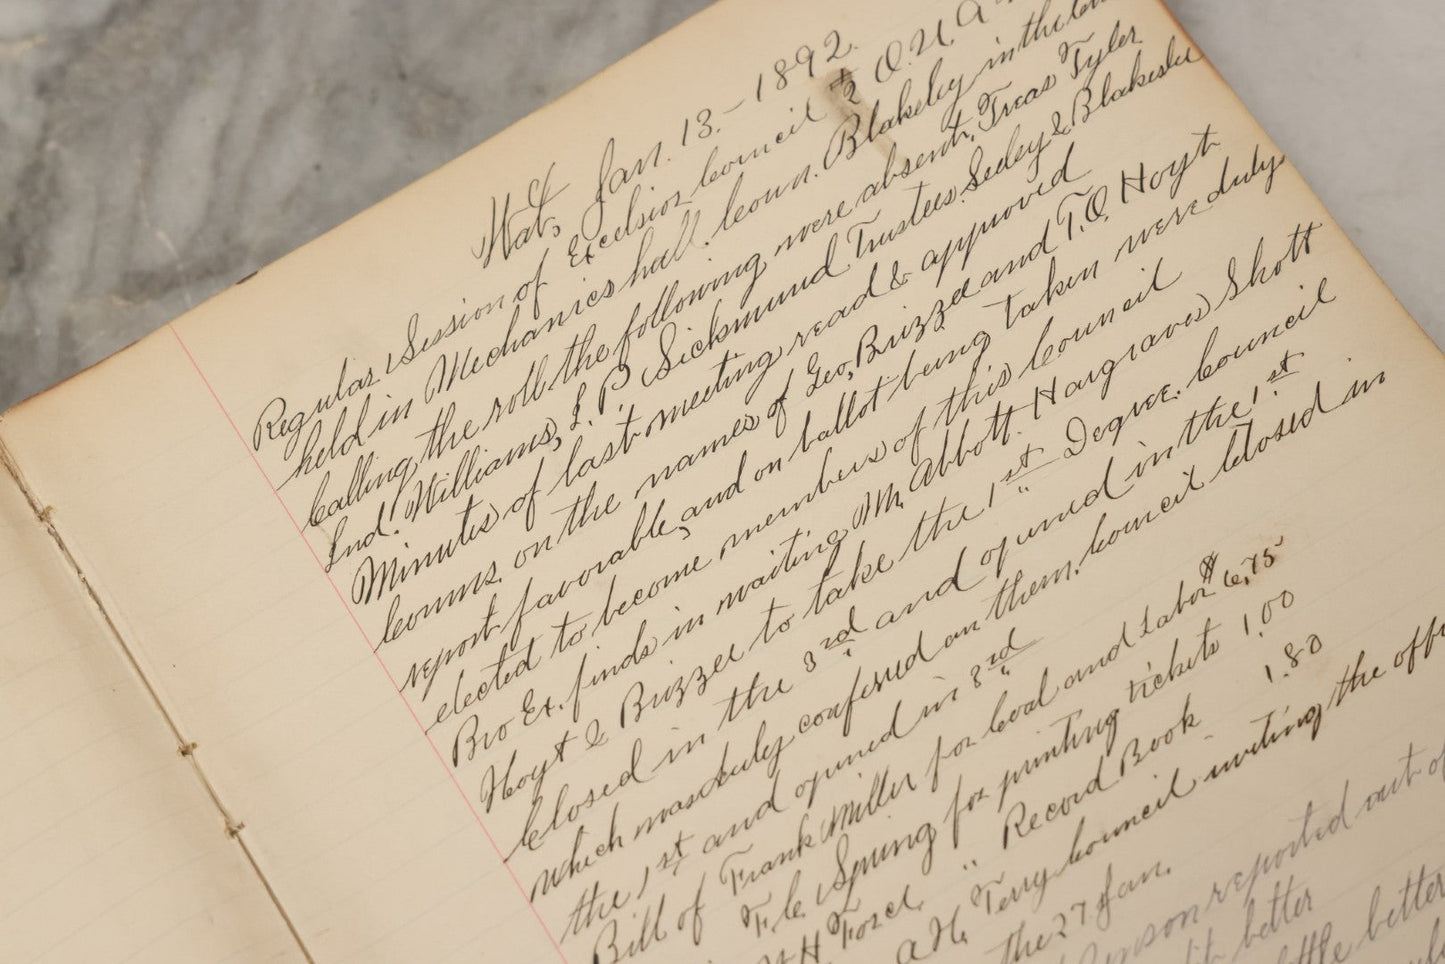 Wat, Ct Jan. 13.- 1892.
Regular Session of Excelsior Council # 2 O.U.A
held in Mechanics hall. Coun. Blakeley in the
Calling the roll the following were absent, Treas Tyler
Ind. Williams, L. P. Sickmund Trustees Seeley & Blakeslee
Minutes of last meeting read & approved
Comms. on the names of Geo, Buzzee and T.O. Hoyt
report favorable, and on ballot being taken were duly
elected to become members of this Council
Bro Ex. finds in waiting M. Abbott. Hargraves Shott
Hoyt & Buzzee to take the 1st Degree. Council
Closed in the 3rd and opened in the 1st
which was duly conferred on them. Council Closed in
the 1st and opened in 3rd
Bill of Frank Miller for Coal and Labor $6,75
F.C. Spring for printing tickets 1.00
H Forel " Record Book 1.80
A.H. Terry Council inviting the
the 27 Jan.
reported out of
better
little better